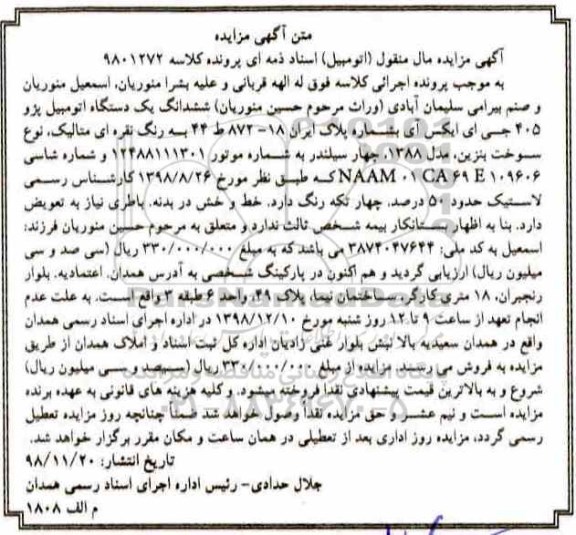 متن آگهی مزایده
آگهی مزایده مال منقول (اتومبیل) اسناد ذمه ای پرونده کلاسه ۹۸۰۱۲۷۲
به موجب پرونده اجرائی کلاسه فوق له الهه قربانی و علیه بشرا منوریان، اسمعیل منوریان
و صنم بیرامی سلیمان آبادی (وراث مرحوم حسین منوریان) ششدانگ یک دستگاه اتومبیل پژو
۴۰۵ جی ای ایکس ای بشماره پلاک ایران ۱۸- ۸۷۲ ط ۴۴ به رنگ نقره ای متالیک، نوع
سوخت بنزین، مدل ۱۳۸۸، چهار سیلندر به شماره موتور ۱۲۴۸۸۱۱۱۳۰۱ و شماره شاسی
NAAM ۰۱ CA ۶۹ E ۱۰۹۶۰۶ که طبق نظر مورخ ۱۳۹۸/۸/۲۶ کارشناس رسمی
لاستیک حدود ۵۰ درصد، چهار تکه رنگ دارد. خط و خش در بدنه، باطری نیاز به تعویض
دارد. بنا به اظهار بستانکار بیمه شخص ثالث ندارد و متعلق به مرحوم حسین منوریان فرزند:
اسمعیل به کد ملی: ۳۸۷۴۰۴۷۶۴۴ می باشد که به مبلغ ۳۳۰/۰۰۰/۰۰۰ ریال (سی صد و سی
میلیون ریال) ارزیابی گردید و هم اکنون در پارکینگ شخصی به آدرس همدان، اعتمادیه، بلوار
رنجبران، ۱۸ متری کارگر، ساختمان نیما، پلاک ۴۹، واحد ۶ طبقه ۳ واقع است. به علت عدم
انجام تعهد از ساعت ۹ تا ۱۲ روز شنبه مورخ ۱۳۹۸/۱۲/۱۰ در اداره اجرای اسناد رسمی همدان
واقع در همدان سعیدیه بالا نبش بلوار غنی زادیان اداره کل ثبت اسناد و املاک همدان از طریق
مزایده به فروش می رسد. مزایده از مبلغ ۳۳۰/۰۰۰/۰۰۰ ریال (سیصد و سی میلیون ریال)
شروع و به بالاترین قیمت پیشنهادی نقداً فروخته میشود. و کلیه هزینه های قانونی به عهده برنده
مزایده است و نیم عشر و حق مزایده نقداً وصول خواهد شد ضمناً چنانچه روز مزایده تعطیل
رسمی گردد، مزایده روز اداری بعد از تعطیلی در همان ساعت و مکان مقرر برگزار خواهد شد.
تاریخ انتشار: ۹۸/۱۱/۲۰
جلال حدادی- رئیس اداره اجرای اسناد رسمی همدان
م الف ۱۸۰۸